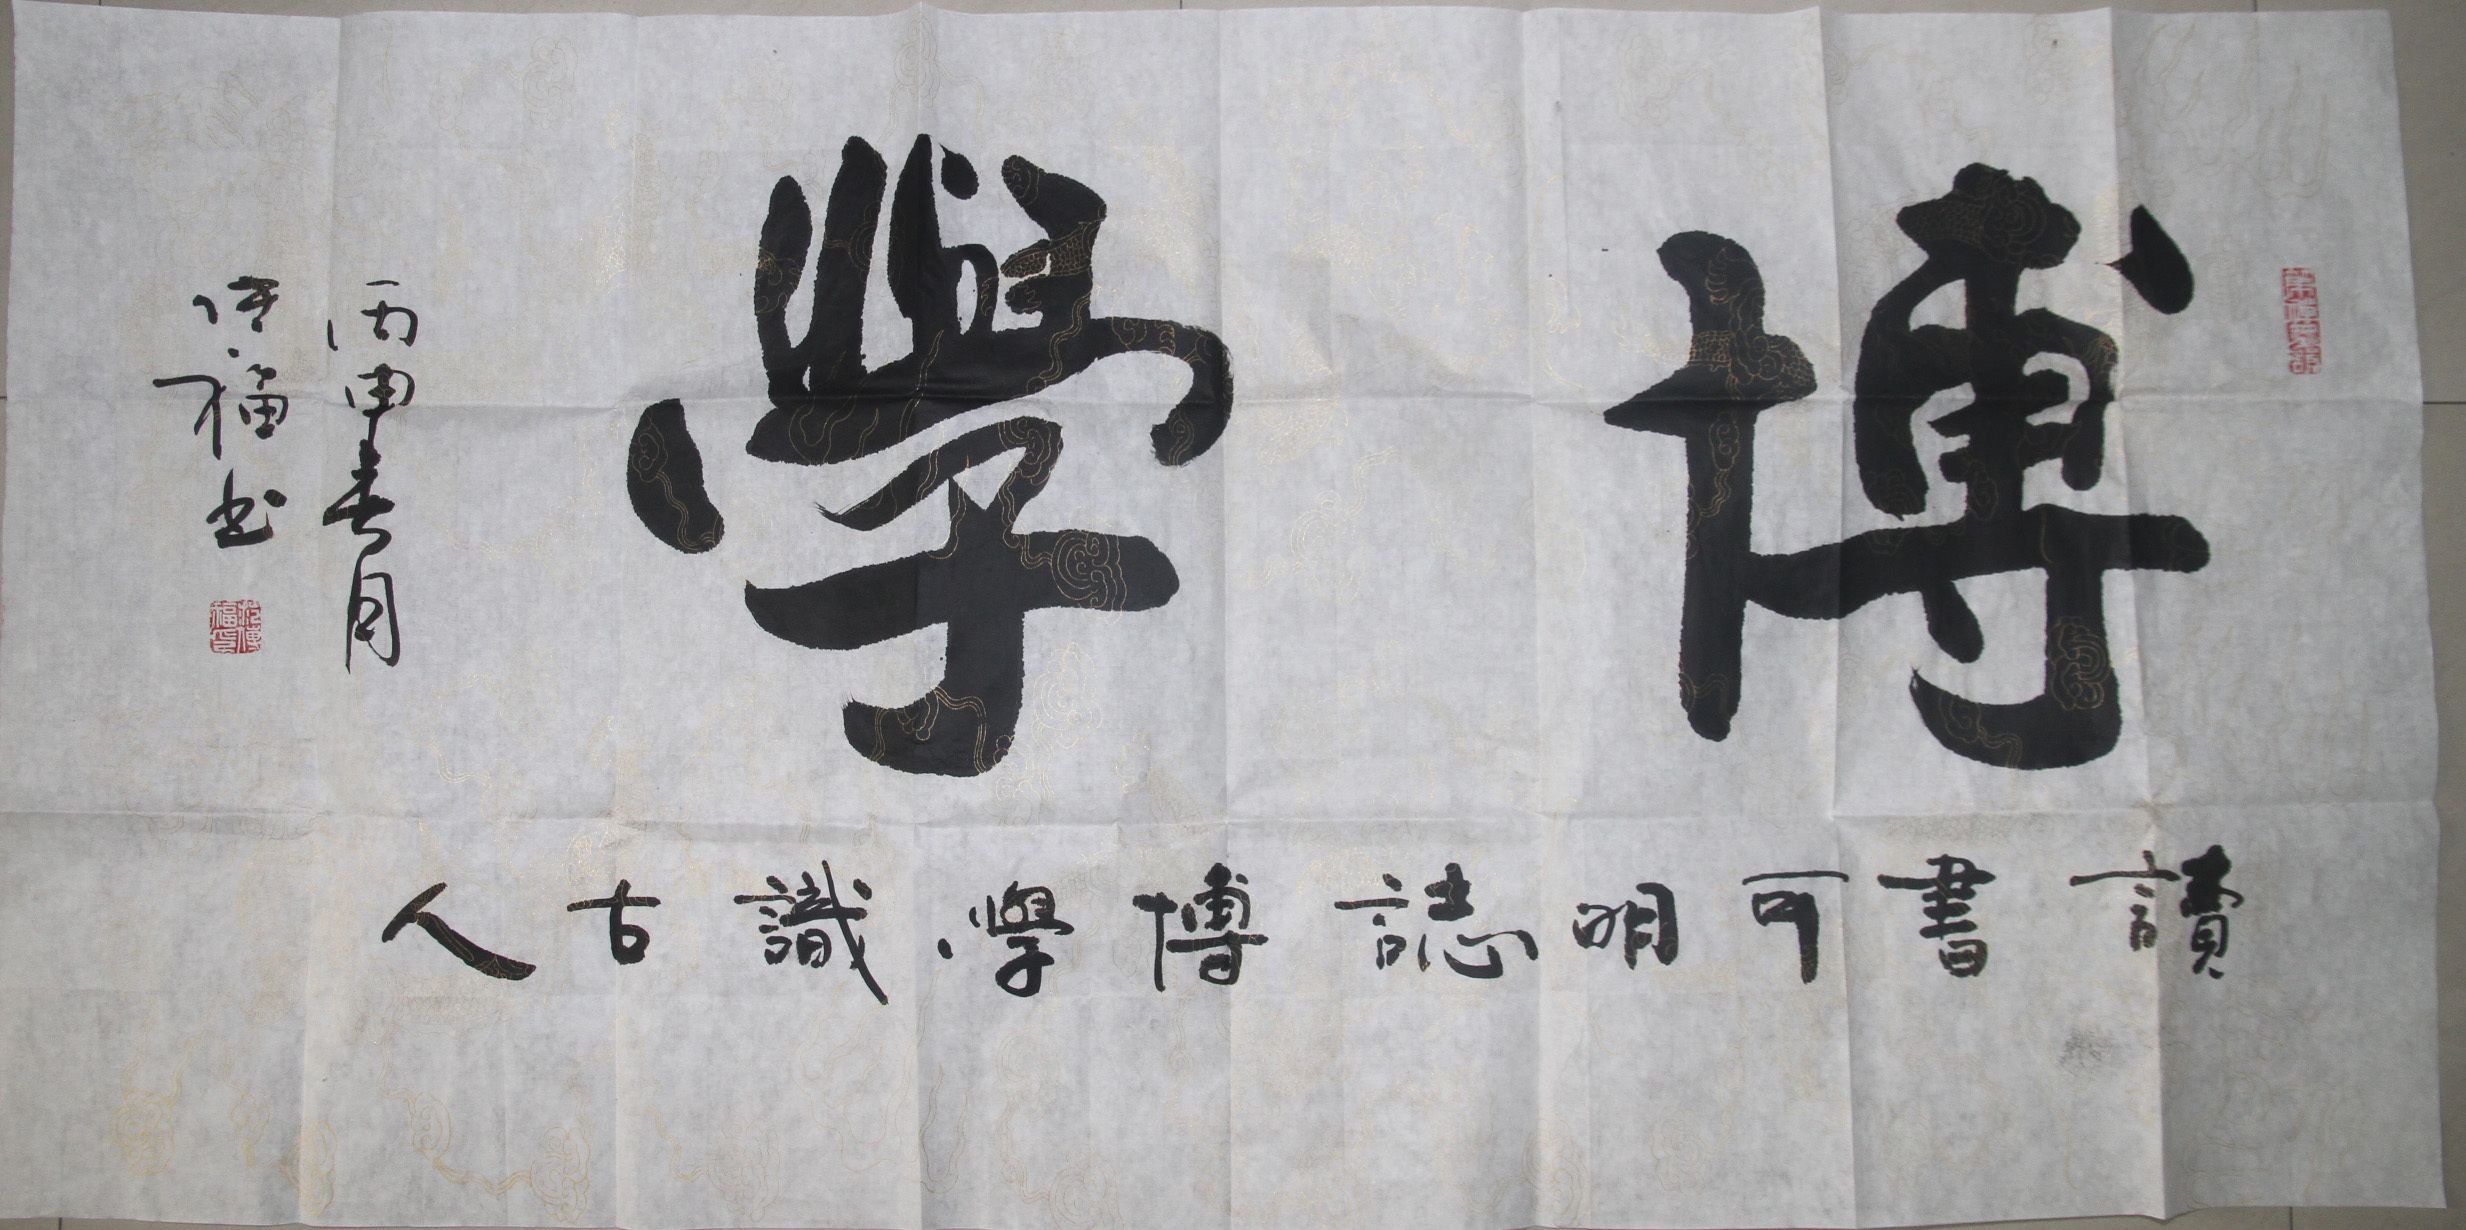 博學
讀書可明誌博學識古人
丙申春月
傳福書